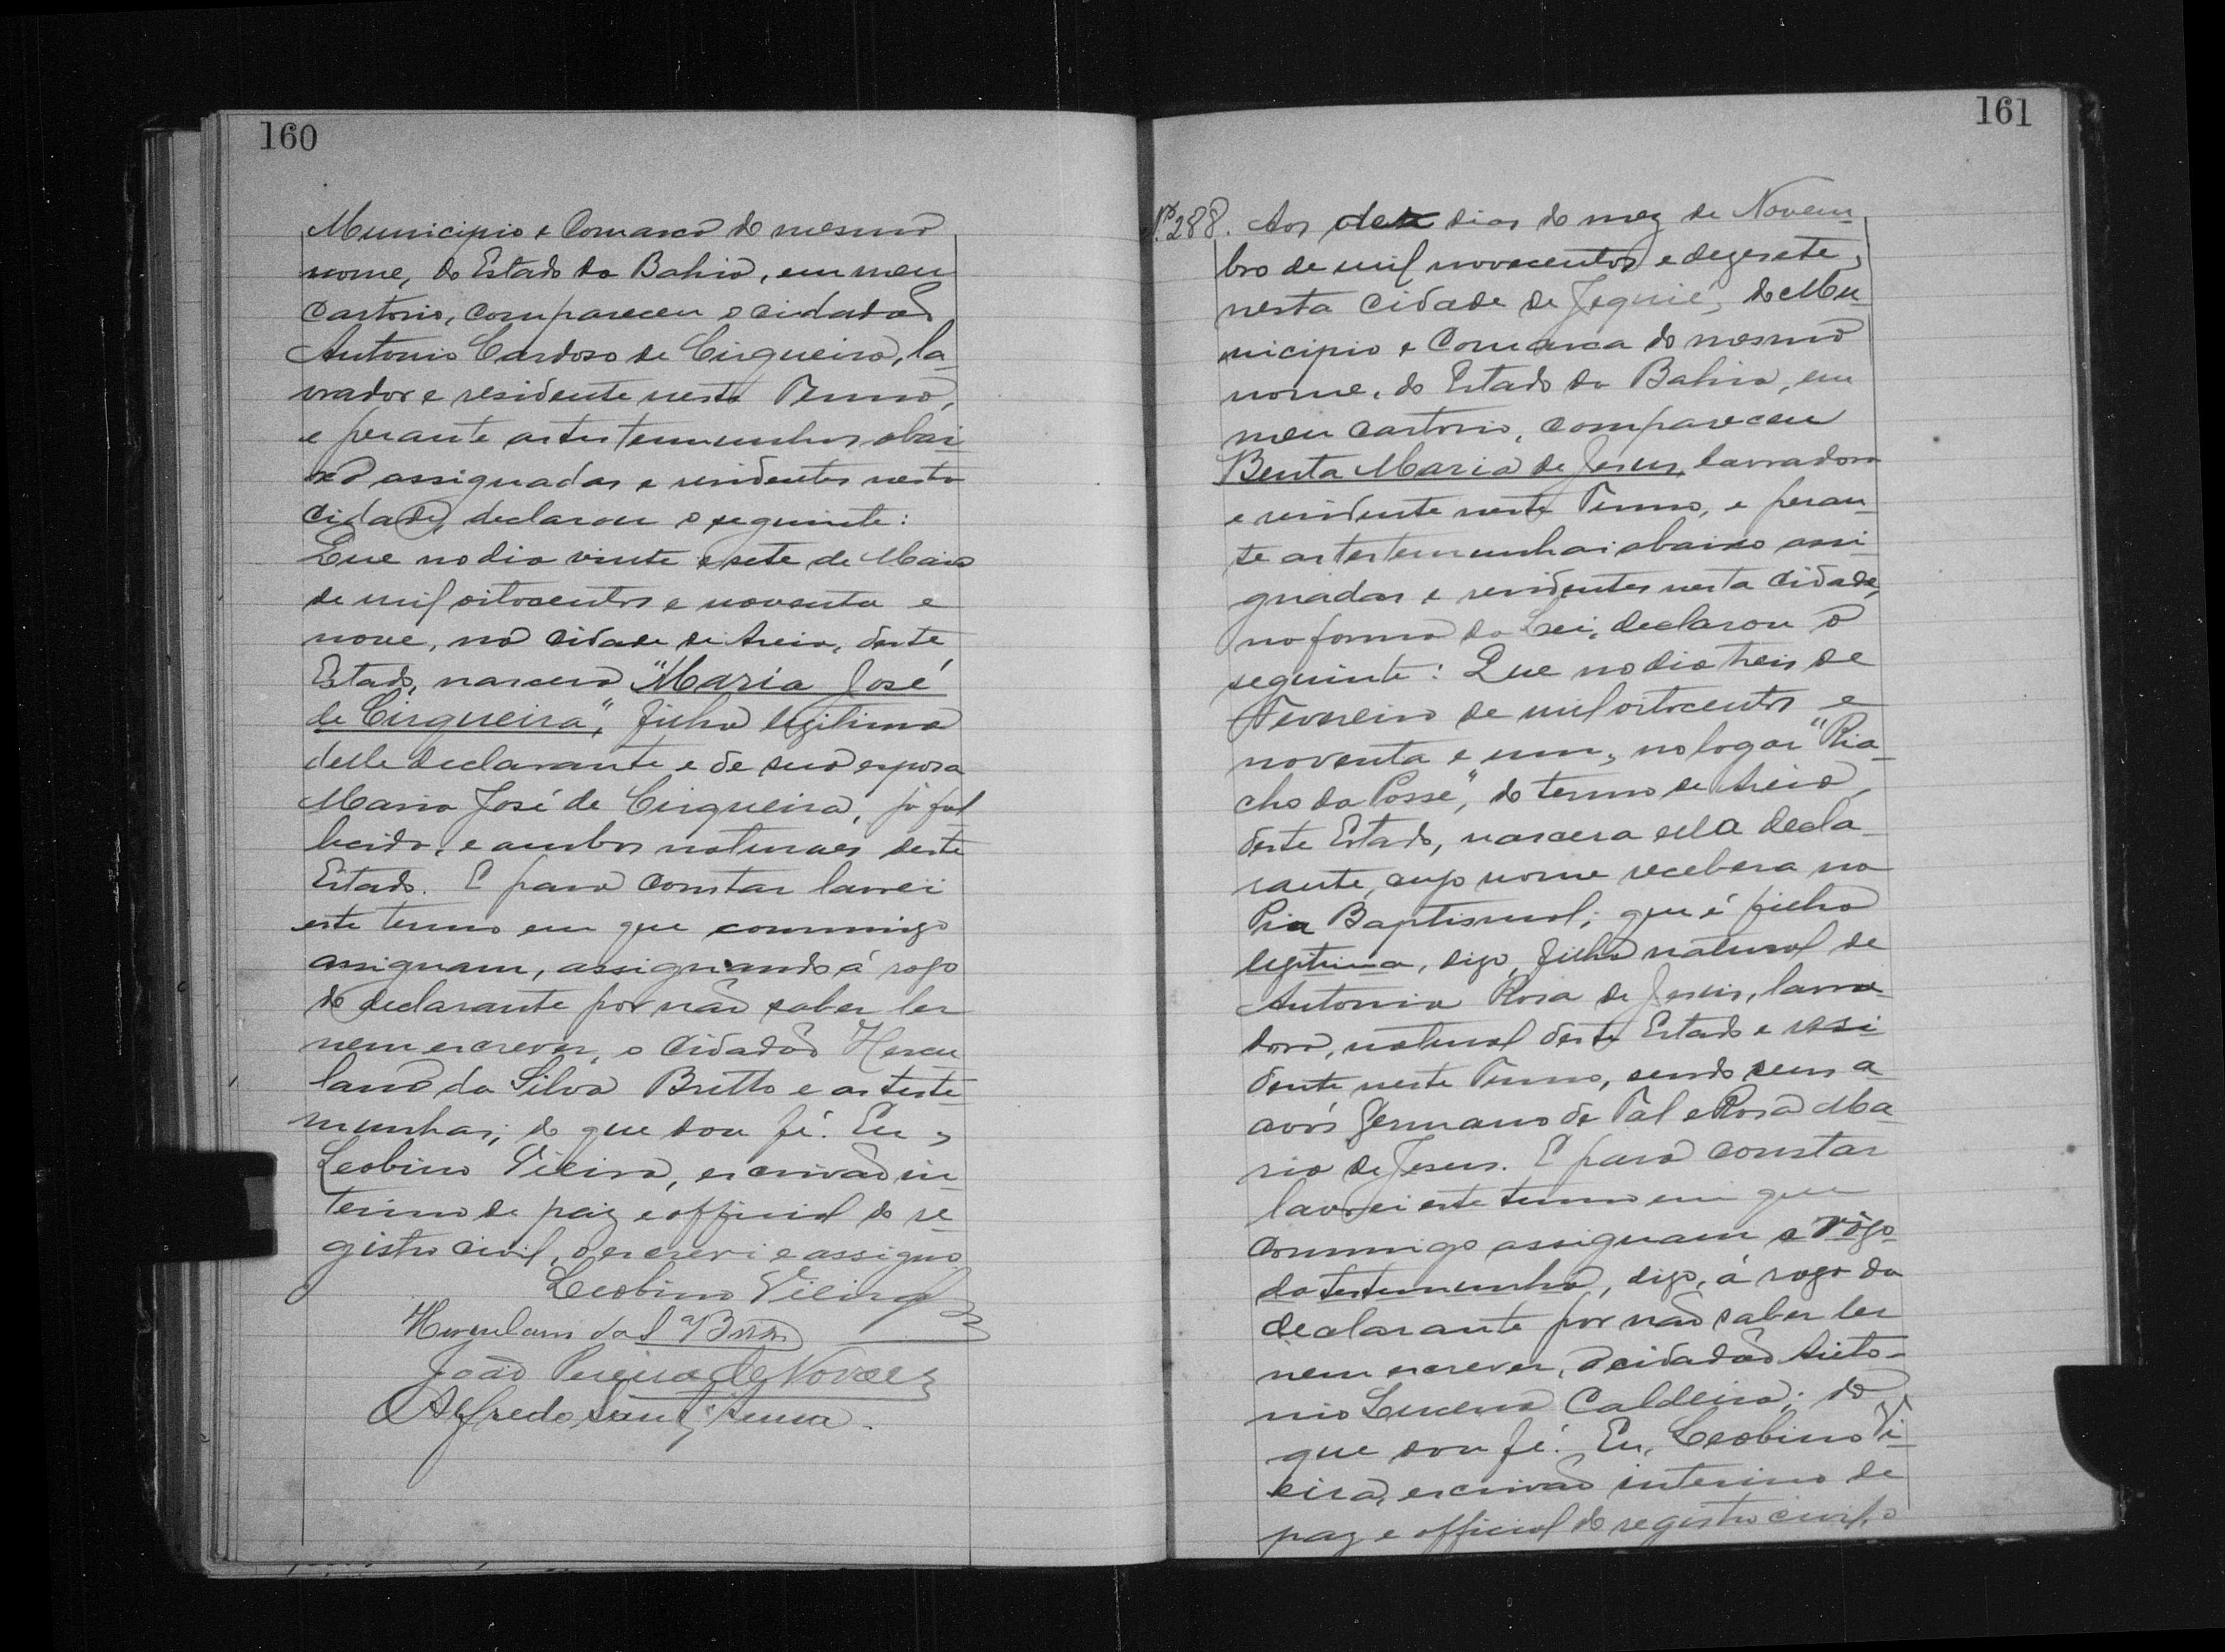 160
Municipio e Comarca do mesmo
nome, do Estado da Bahia, em meu
Cartorio, compareceu o cidadão
Antonio Cardoso de Cirqueira, la-
vrador e residente neste Termo,
e perante as testemunhas abai-
xo assignadas e residentes nesta
Cidade, declarou o seguinte:
Que no dia vinte e sete de Maio
de mil oitocentos e noventa e
nove, na Cidade de Areia, deste
Estado, nascera "Maria José
de Cirqueira", filha legitima
delle declarante e de sua esposa
Maria José de Cirqueira, já fal-
lecida, e ambos naturaes deste
Estado. E para constar lavrei
este termo em que commigo
assignam, assignando á rogo
do declarante por não saber ler
nem escrever, o Cidadão Hercu-
lano da Silva Britto e as teste-
munhas; do que dou fé. Eu,
Leobino Vieira, escrivão in-
terino de paz e official do re-
gistro civil, o escrevi e assigno.
Leobino Vieira
Herculano da Sª Britto
João Pereira de Novaes
Alfredo Sant'Anna.
161
Nº 288. Aos dez dias do mez de Novem-
bro de mil novecentos e dezesete,
nesta Cidade de Jequié, do Mu-
nicipio e Comarca do mesmo
nome, do Estado da Bahia, em
meu cartorio, compareceu
Benta Maria de Jesus, lavradora
e residente neste Termo, e peran-
te as testemunhas abaixo assi-
gnadas e residentes nesta Cidade,
na forma da Lei, declarou o
seguinte: Que no dia treis de
Fevereiro de mil oitocentos e
noventa e um, no logar "Ria-
cho da Posse", do termo de Areia,
deste Estado, nascera ella decla-
rante, cujo nome recebera na
Pia Baptismal; que é filha
legitima, digo, filha natural de
Antonia Rosa de Jesus, lavra-
dora, natural deste Estado e resi-
dente neste Termo, sendo seus a-
vós Germano de Tal e Rosa Ma-
ria de Jesus. E para constar
lavrei este termo em que
commigo assignam a rôgo
da testemunha, digo, á rogo da
declarante por não saber ler
nem escrever, o cidadão Anto-
nio Lucena Caldeira; do
que dou fé. Eu, Leobino Vi-
eira, escrivão interino de
paz e official do registro civil, o